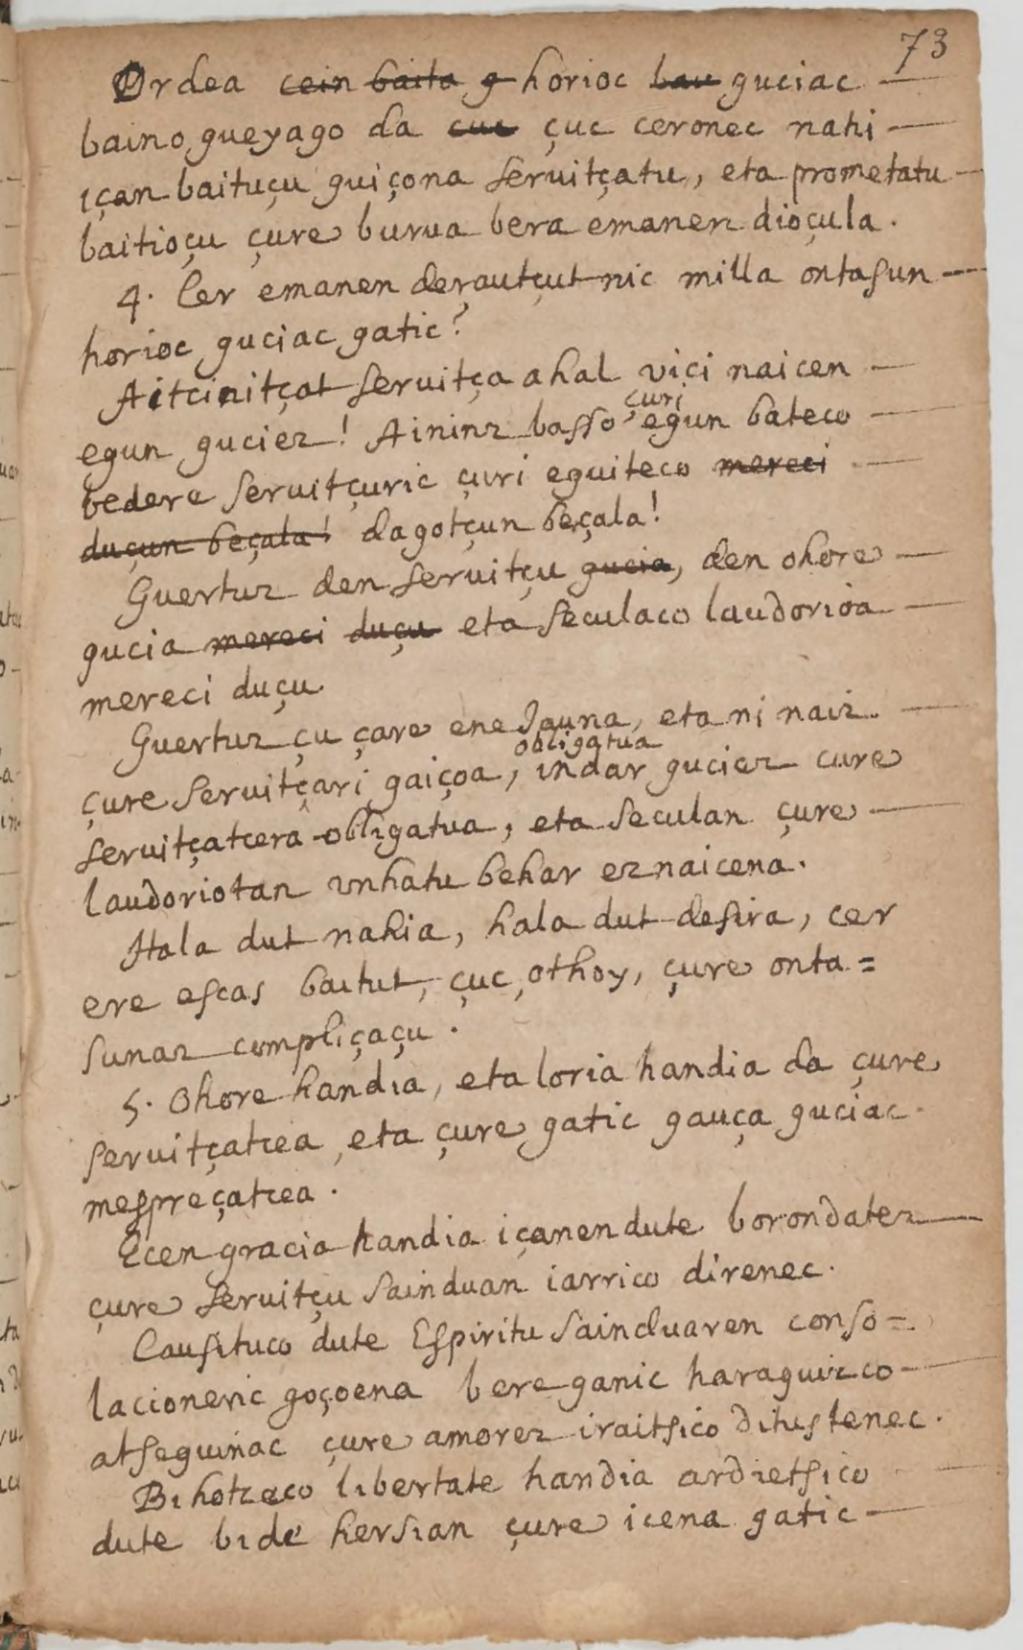 73
Ordea cein baita g horioc hau guciac
baino gueyago da cuc çuc ceronec nahi
içan baituçu guiçona seruitçatu, eta prometatu
baitioçu çure burua bera emanen dioçula.
4. Cer emanen derautçut nic milla ontasun
horioc guciac gatic?
Aitcinitçat seruitça ahal vici naicen
çuri
egun guciez! Aininz basso egun bateco
bedere seruitçuric çuri eguiteco mereci
duçun beçala! dagotçun beçala!
Guertuz den seruitçu gucia, den ohore
gucia mereci duçu eta seculaco laudorioa
mereci duçu.
Guertuz çu çare ene Jauna, eta ni naiz
obligatua
çure seruitçari gaiçoa, indar guciez cure
seruitçatcera obligatua, eta seculan çure
laudoriotan vnhatu behar eznaicena.
Hala dut nahia, hala dut desira, cer
ere escas baitut, çuc, othoy, çure onta=
sunaz compliçaçu.
5. Ohore handia, eta loria handia da çure
seruitçatcea, eta çure gatic gauça guciac
mespreçatcea.
Ecen gracia handia içanen dute borondatez
çure seruitçu sainduan iarrico direnec.
Causituco dute Espiritu sainduaren conso=
lacioneric goçoena bere ganic haraguizco
atseguinac çure amorez iraitsico ditustenec.
Bihotzeco libertate handia ardietsico
dute bide hersian çure icena gatic